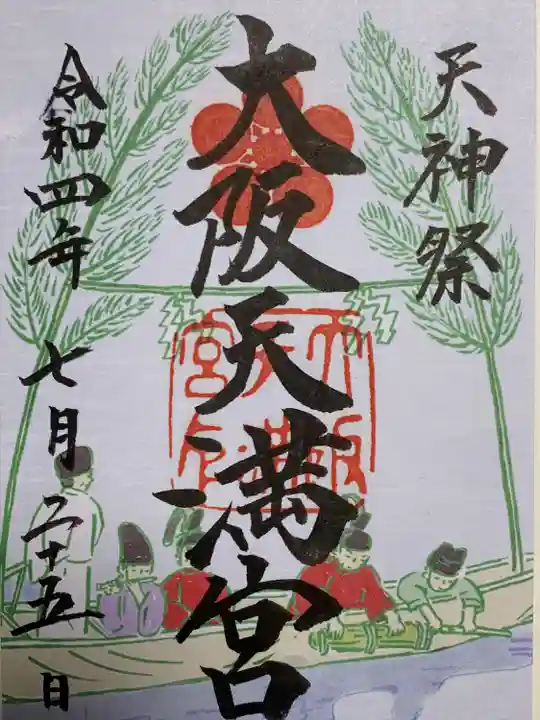 天神祭
大阪天満宮
令和四年七月二十五日